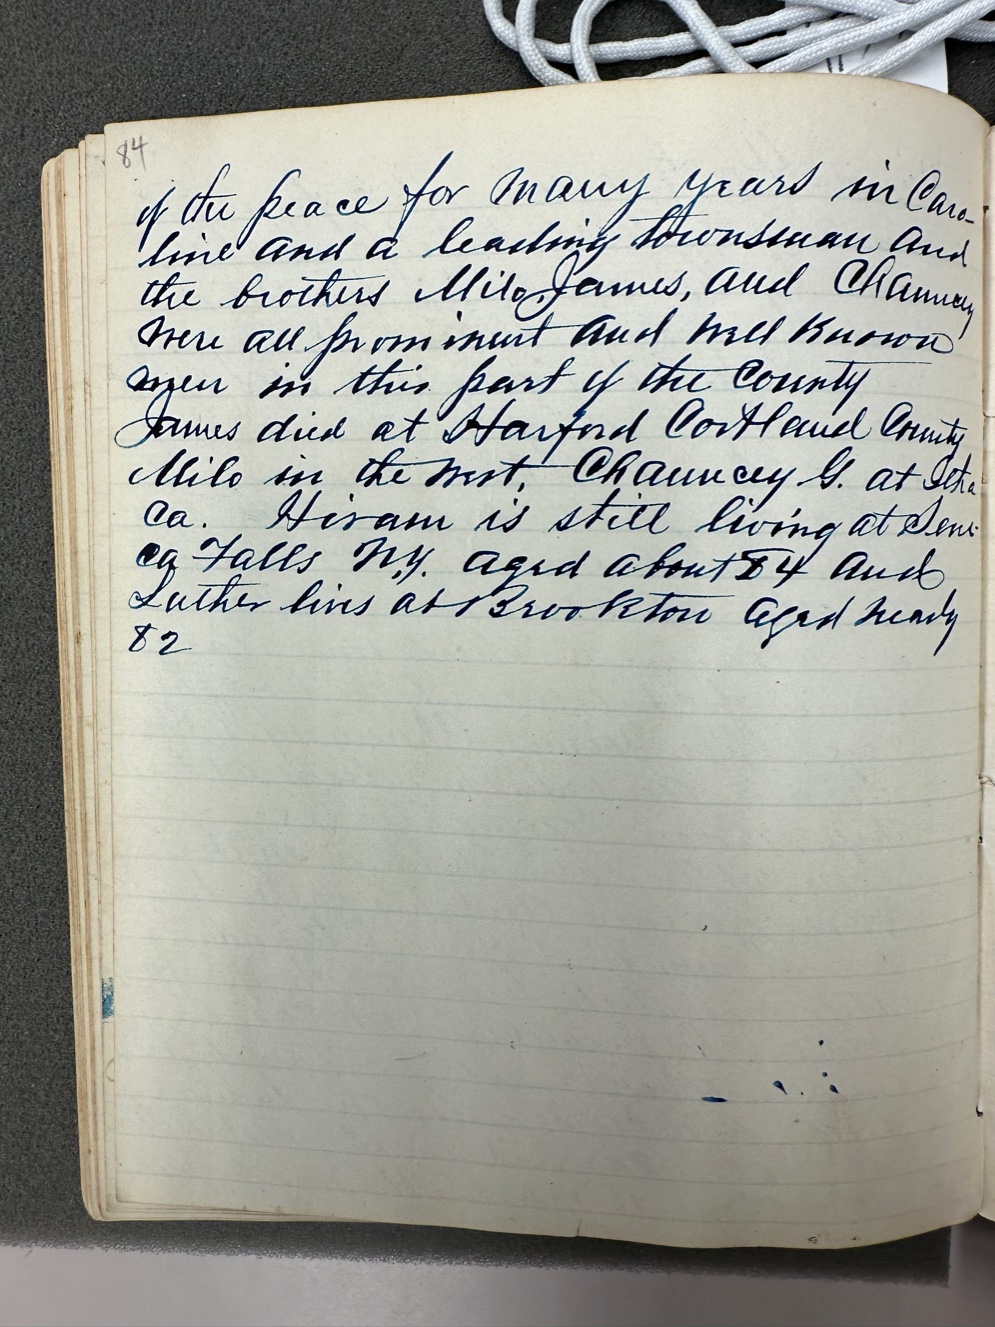 84
of the peace for many years in Caro-
line and a leading townsman and
the brothers Milo, James, and Chauncey
were all prominent and well known
men in this part of the county
James died at Harford Cortland County
Milo in the west, Chauncey G. at Itha
ca. Hiram is still living at Sene-
ca Falls N.Y. aged about 84 and
Luther lives at Brookton aged nearly
82